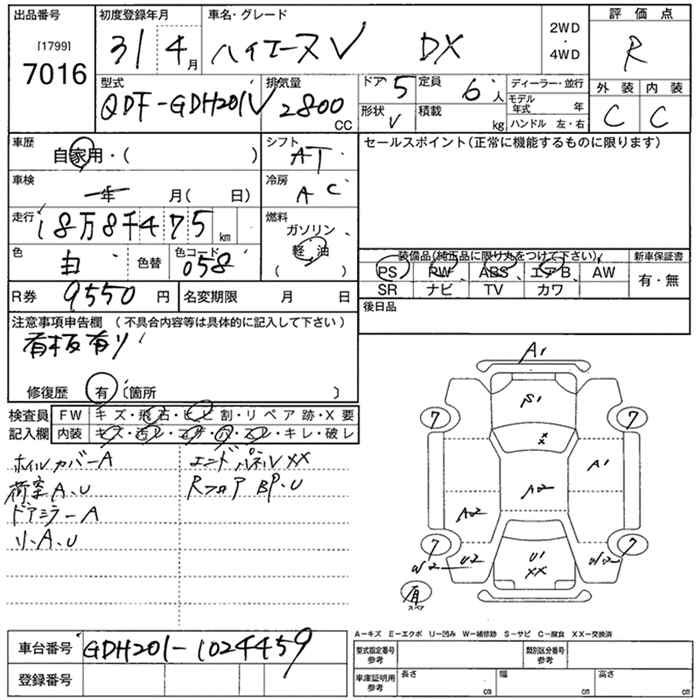 出品番号 初度登録年月 車名・グレード 評価点
[1799]
7016
31 4月 ハイエースV DX 2WD・4WD R
型式 排気量 ドア 5 定員 6人 ディーラー・並行 外装 内装
QDF-GDH201V 2800CC 形状 V 積載 kg モデル年式 年 C C
ハンドル 左・右
車歴 自家用・( ) シフト AT セールスポイント(正常に機能するものに限ります)
車検 年 月( 日) 冷房 AC
走行 18万8千475km 燃料 ガソリン
軽・油
( )
色 白 色替 色コード 058 装備品(純正品に限り丸をつけて下さい) 新車保証書
PS PW ABS エアB AW 有・無
SR ナビ TV カワ
R券 9550円 名変期限 月 日 後日品
注意事項申告欄 (不具合内容等は具体的に記入して下さい)
看板有り
修復歴 有 〔箇所 〕
検査員記入欄 FW キズ・飛石・ヒビ割・リペア跡・X要
内装 キズ・汚レ・コゲ・穴・スレ・キレ・破レ
ホイルカバーA エンドパネルXX
荷室A.U RフロアBP.U
ドアミラーA
小A.U
A1
S1
7 7
X
A1
A2
A2
7 7
W2 U2 U1 W2
XX
有 スペア
A－キズ E－エクボ U－凹み W－補修跡 S－サビ C－腐食 XX－交換済
車台番号 GDH201-1024459
型式指定番号 参考 類別区分番号 参考
登録番号
車庫証明用 参考 長さ cm 幅 cm 高さ cm